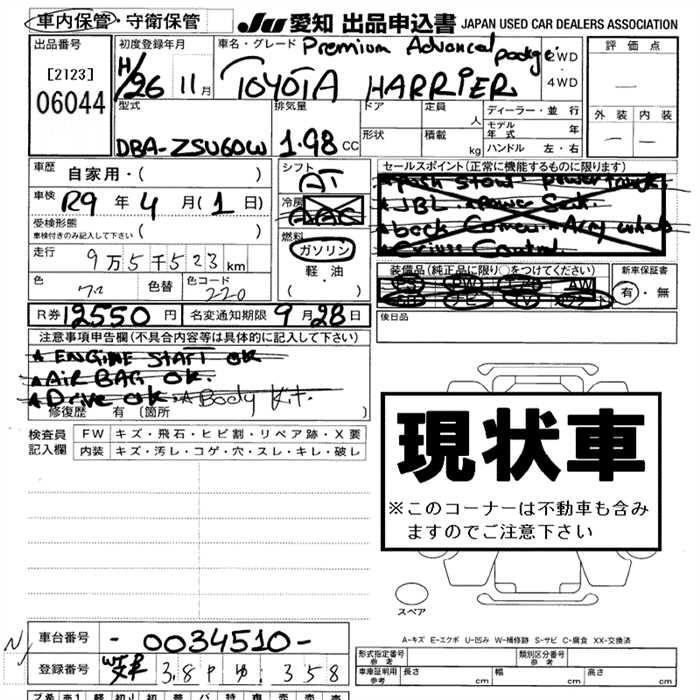 車内保管・守衛保管 JU 愛知 出品申込書 JAPAN USED CAR DEALERS ASSOCIATION
出品番号 [2123] 06044
初度登録年月 H/26 11月
車名・グレード Premium Advanced package
TOYOTA HARRIER
2WD・4WD
評価点 —
外装 — 内装 —
型式 DBA-ZSU60W
排気量 1.98 CC
ドア 定員 人
形状 積載 kg
ディーラー・並行
モデル年式 年
ハンドル 左・右
車歴 自家用・( )
車検 R9年 4月(1日)
受検形態 車検付きのみ記入して下さい ( )
走行 9万5千523km
色 色替 色コード 220
シフト AT
冷房 AAC
燃料 ガソリン・軽油・( )
セールスポイント(正常に機能するものに限ります)
★push start power trunk.
★JBL ★power seat.
★back camera ★Alloy wheels
★cruise control
装備品(純正品に限り○をつけてください)
PS PW エアB AW
SR ナビ TV カワ
新車保証書 有・無
後日品
R券 12550円 名変通知期限 9月28日
注意事項申告欄(不具合内容等は具体的に記入して下さい)
★ENGINE START OK
★AIR BAG OK.
★Drive OK. ★Body Kit.
修復歴 有(箇所 )
検査員記入欄
FW キズ・飛石・ヒビ割・リペア跡・X要
内装 キズ・汚レ・コゲ・穴・スレ・キレ・破レ
現状車
※このコーナーは不動車も含みますのでご注意下さい
スペア
A-キズ E-エクボ U-凹み W-補修跡 S-サビ C-腐食 XX-交換済
車台番号 -0034510-
登録番号 358
形式指定番号 参考 類別区分番号 参考
車庫証明用 参考 長さ cm 幅 cm 高さ cm